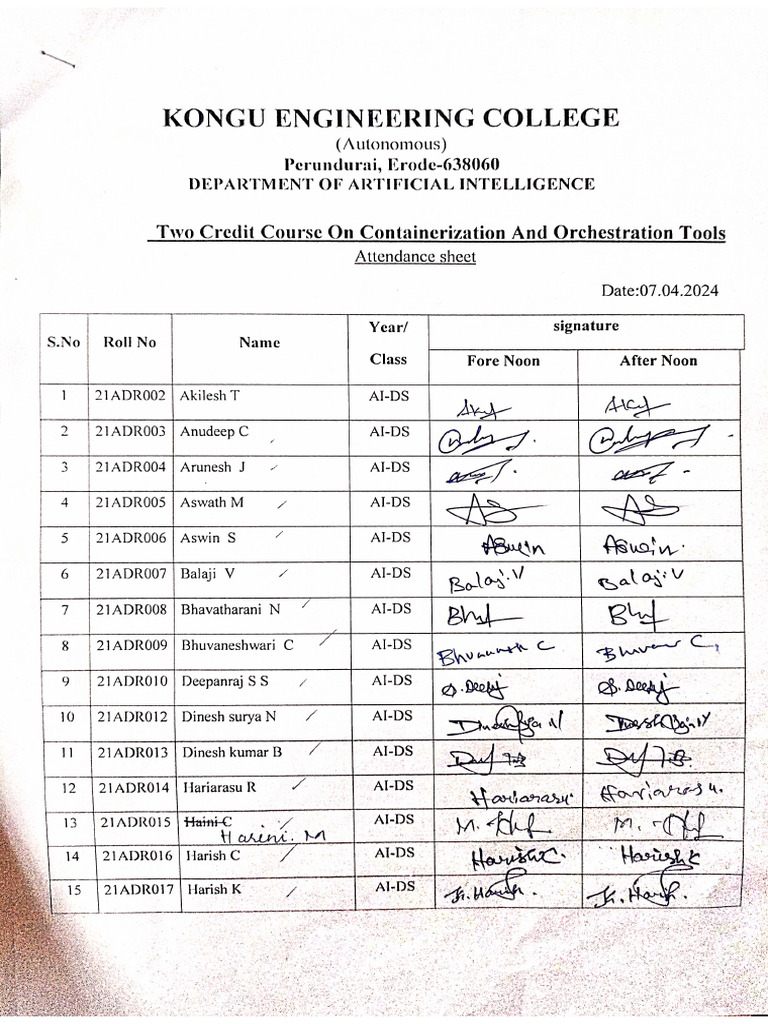 KONGU ENGINEERING COLLEGE
(Autonomous)
Perundurai, Erode-638060
DEPARTMENT OF ARTIFICIAL INTELLIGENCE
Two Credit Course On Containerization And Orchestration Tools
Attendance sheet
Date:07.04.2024
S.No Roll No Name Year/ Class signature
Fore Noon After Noon
1 21ADR002 Akilesh T AI-DS
2 21ADR003 Anudeep C AI-DS
3 21ADR004 Arunesh J AI-DS
4 21ADR005 Aswath M AI-DS
5 21ADR006 Aswin S AI-DS Aswin Aswin.
6 21ADR007 Balaji V AI-DS Balaji.V Balaji.V
7 21ADR008 Bhavatharani N AI-DS
8 21ADR009 Bhuvaneshwari C AI-DS
9 21ADR010 Deepanraj S S AI-DS
10 21ADR012 Dinesh surya N AI-DS
11 21ADR013 Dinesh kumar B AI-DS
12 21ADR014 Hariarasu R AI-DS Hariarasu. Hariarasu.
13 21ADR015 Haini C AI-DS
Harini. M
14 21ADR016 Harish C AI-DS Harish C. Harish C
15 21ADR017 Harish K AI-DS K. Harish. K. Harish.